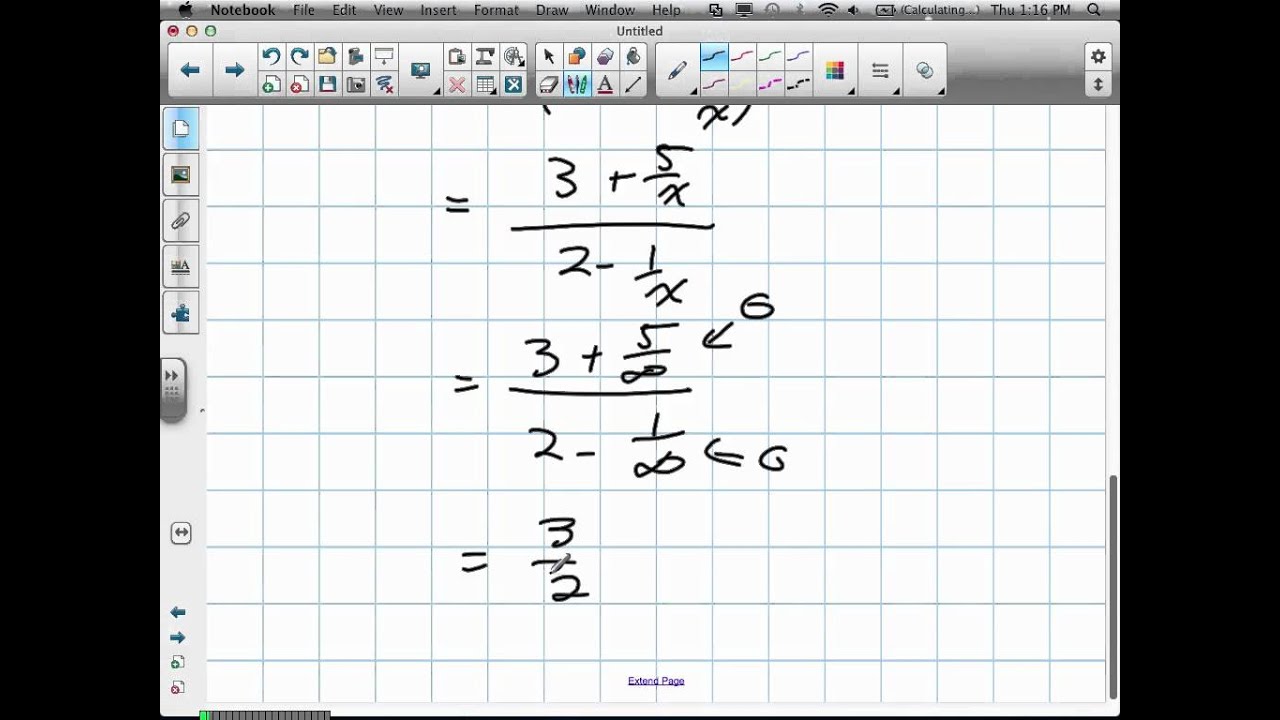 Notebook File Edit View Insert Format Draw Window Help (Calculating... Thu 1:16 PM
Untitled
x)
= (3 + 5/x)/(2 - 1/x)
= (3 + 5/∞ ← 0)/(2 - 1/∞ ← 0)
= 3/2
Extend Page